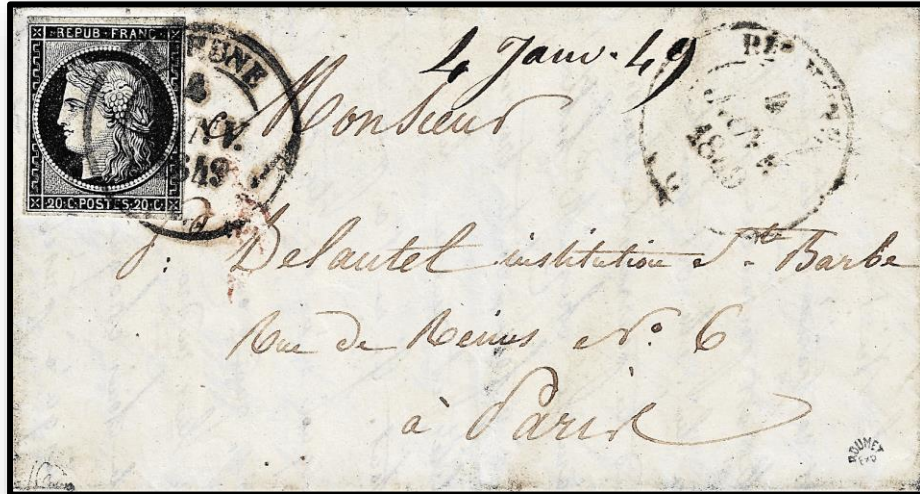 REPUB·FRANC·
20·C·POSTES·20·C·
4
NV.
849
4 Janv. 49
4
JANV.
1849
Monsieur
J: Delautel institution Ste Barbe
Rue de Reims No. 6
à Paris
ROUMET
EXP